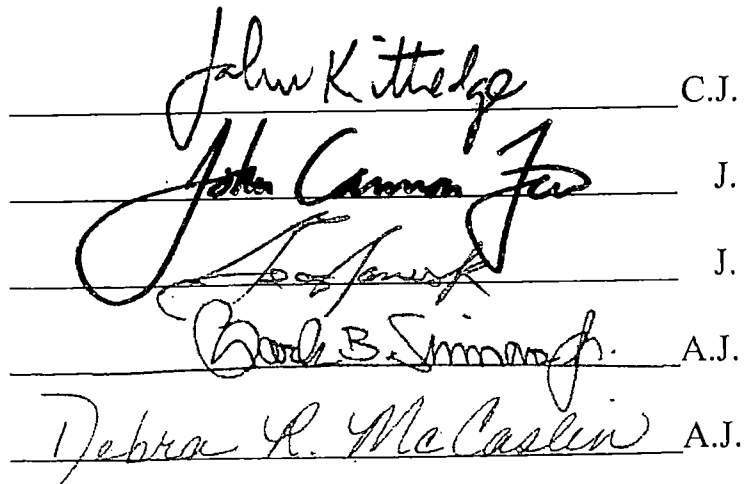 John Kittredge C.J.
John Cannon Few J.
J.
B. Simmons Jr. A.J.
Debra R. McCaslin A.J.